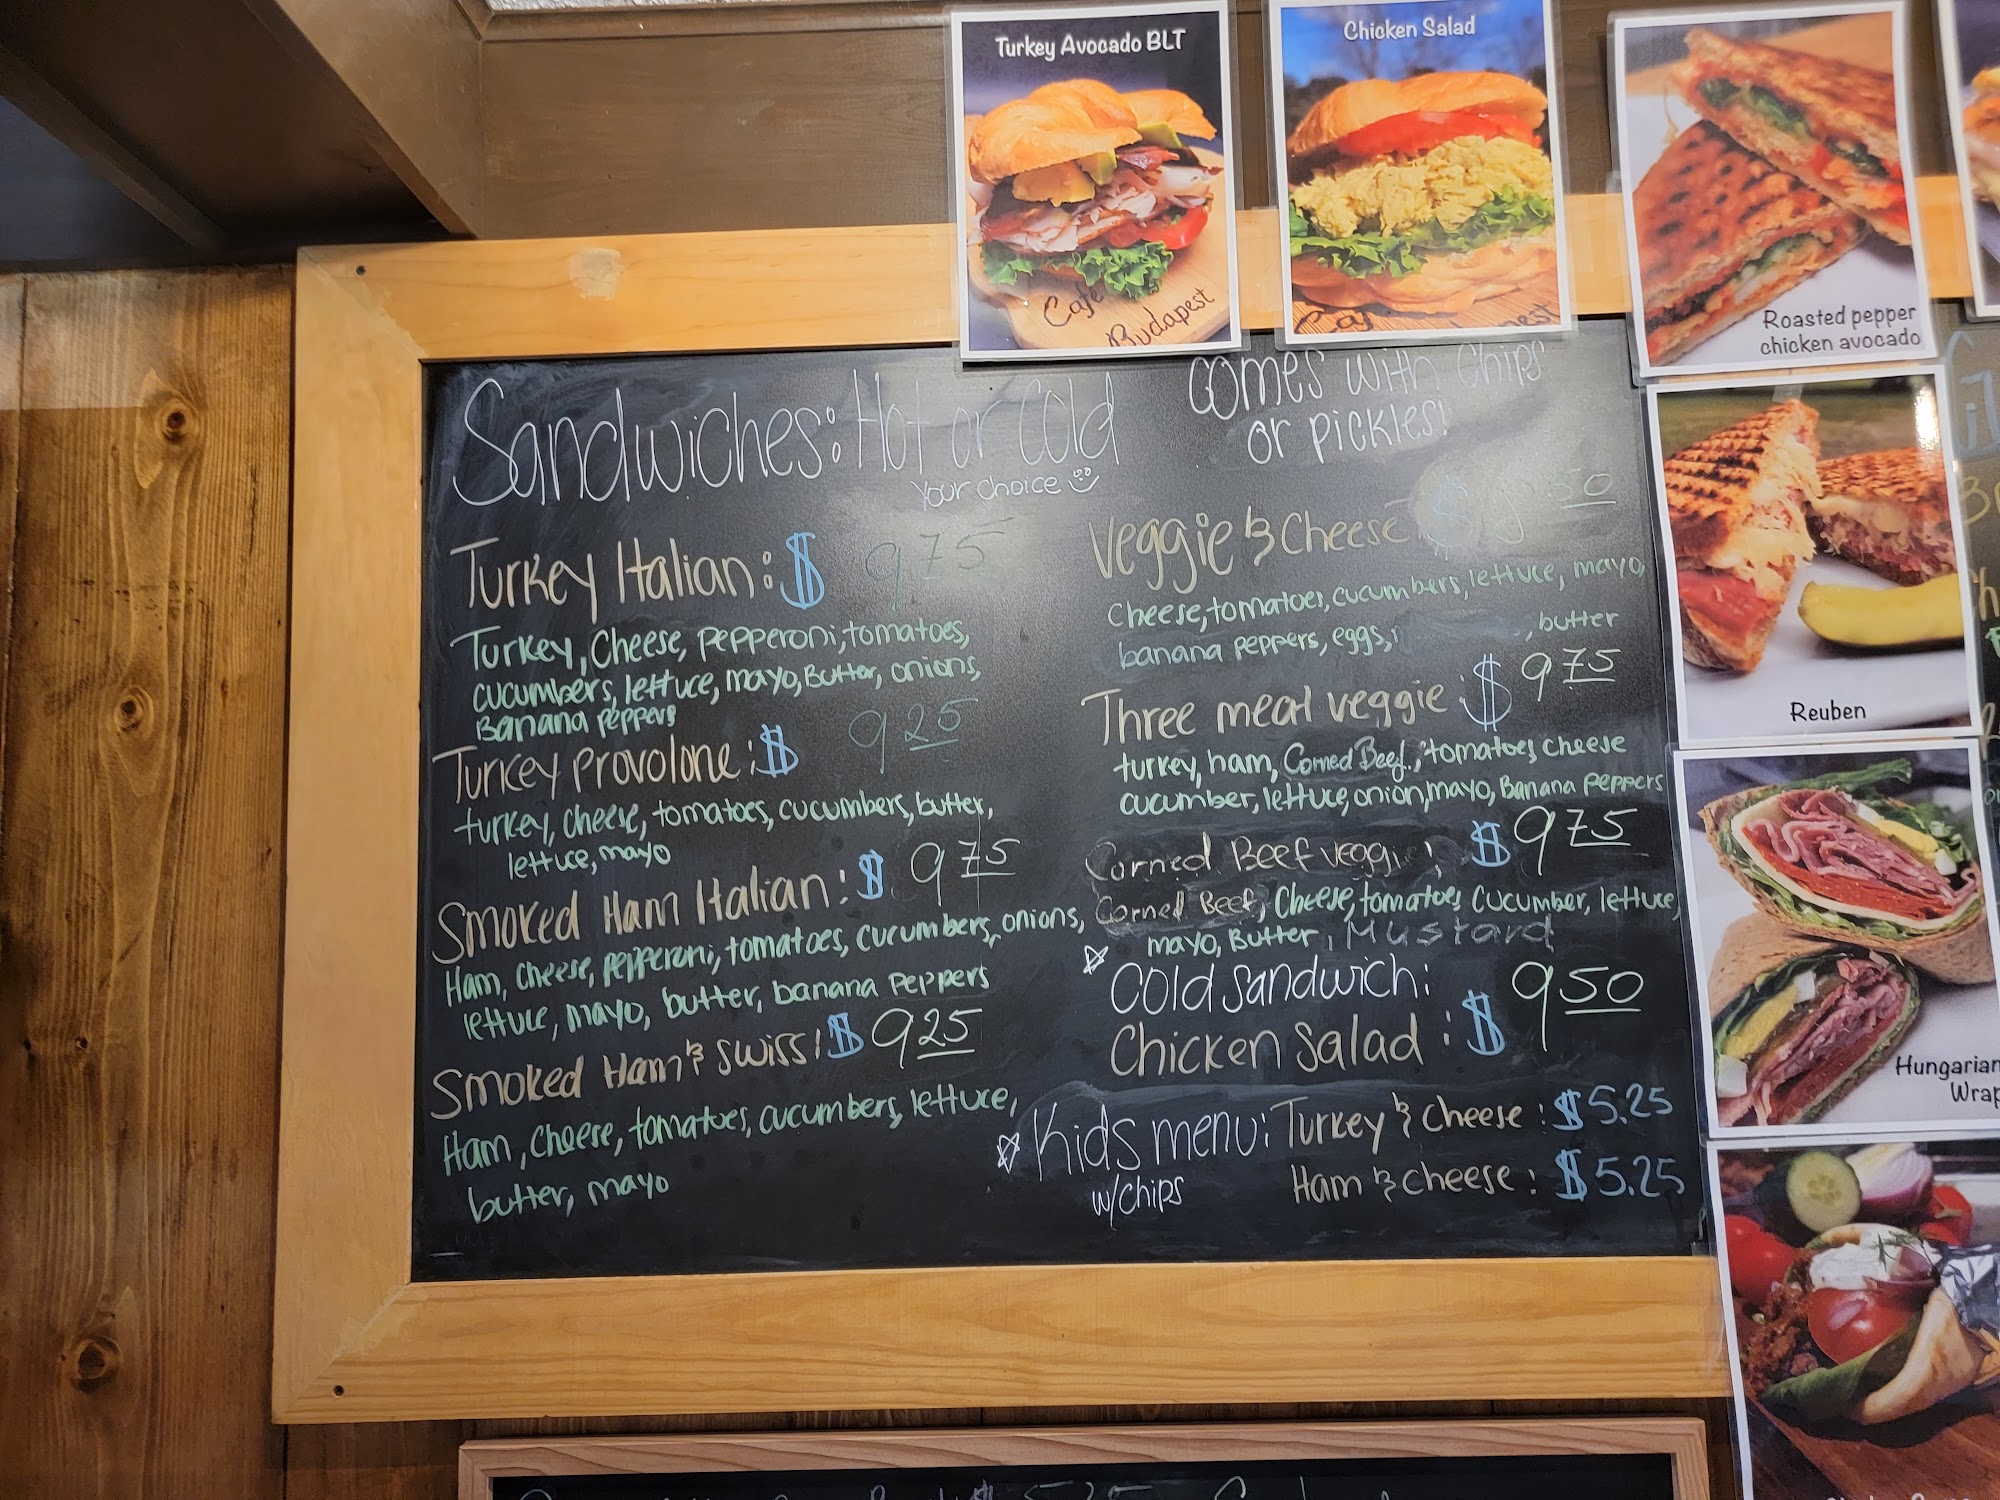 Turkey Avocado BLT
Café
Budapest
Chicken Salad
Roasted pepper
chicken avocado
Reuben
Hungarian
Wrap
Sandwiches: Hot or Cold
Your choice
Comes with Chips
or pickles!
Turkey Italian: $ 975
Turkey, Cheese, pepperoni, tomatoes,
cucumbers, lettuce, mayo, Butter, onions,
Banana peppers
Turkey Provolone: $ 925
turkey, cheese, tomatoes, cucumbers, butter,
lettuce, mayo
Smoked Ham Italian: $ 975
Ham, cheese, pepperoni, tomatoes, cucumbers, onions,
lettuce, mayo, butter, banana peppers
Smoked Ham & Swiss: $ 925
Ham, cheese, tomatoes, cucumbers, lettuce,
butter, mayo
Veggie & Cheese $ 50
Cheese, tomatoes, cucumbers, lettuce, mayo,
banana peppers, eggs, , butter
Three meat veggie: $ 975
turkey, ham, Corned Beef, tomatoes cheese
cucumber, lettuce, onion, mayo, Banana peppers
Corned Beef veggie: $ 975
Corned Beef, Cheese, tomatoes, cucumber, lettuce,
mayo, Butter, Mustard
Cold Sandwich:
Chicken Salad: $ 950
Kids menu: Turkey & Cheese: $5.25
w/chips
Ham & Cheese: $5.25